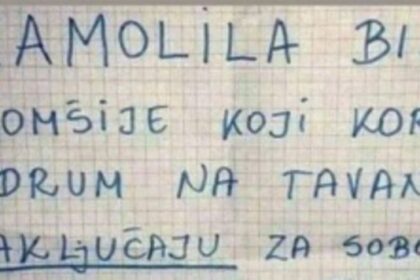 AMOLILA BI
OMŠIJE KOJI KOR
DRUM NA TAVAN
AKLJUČAJU ZA SOBO